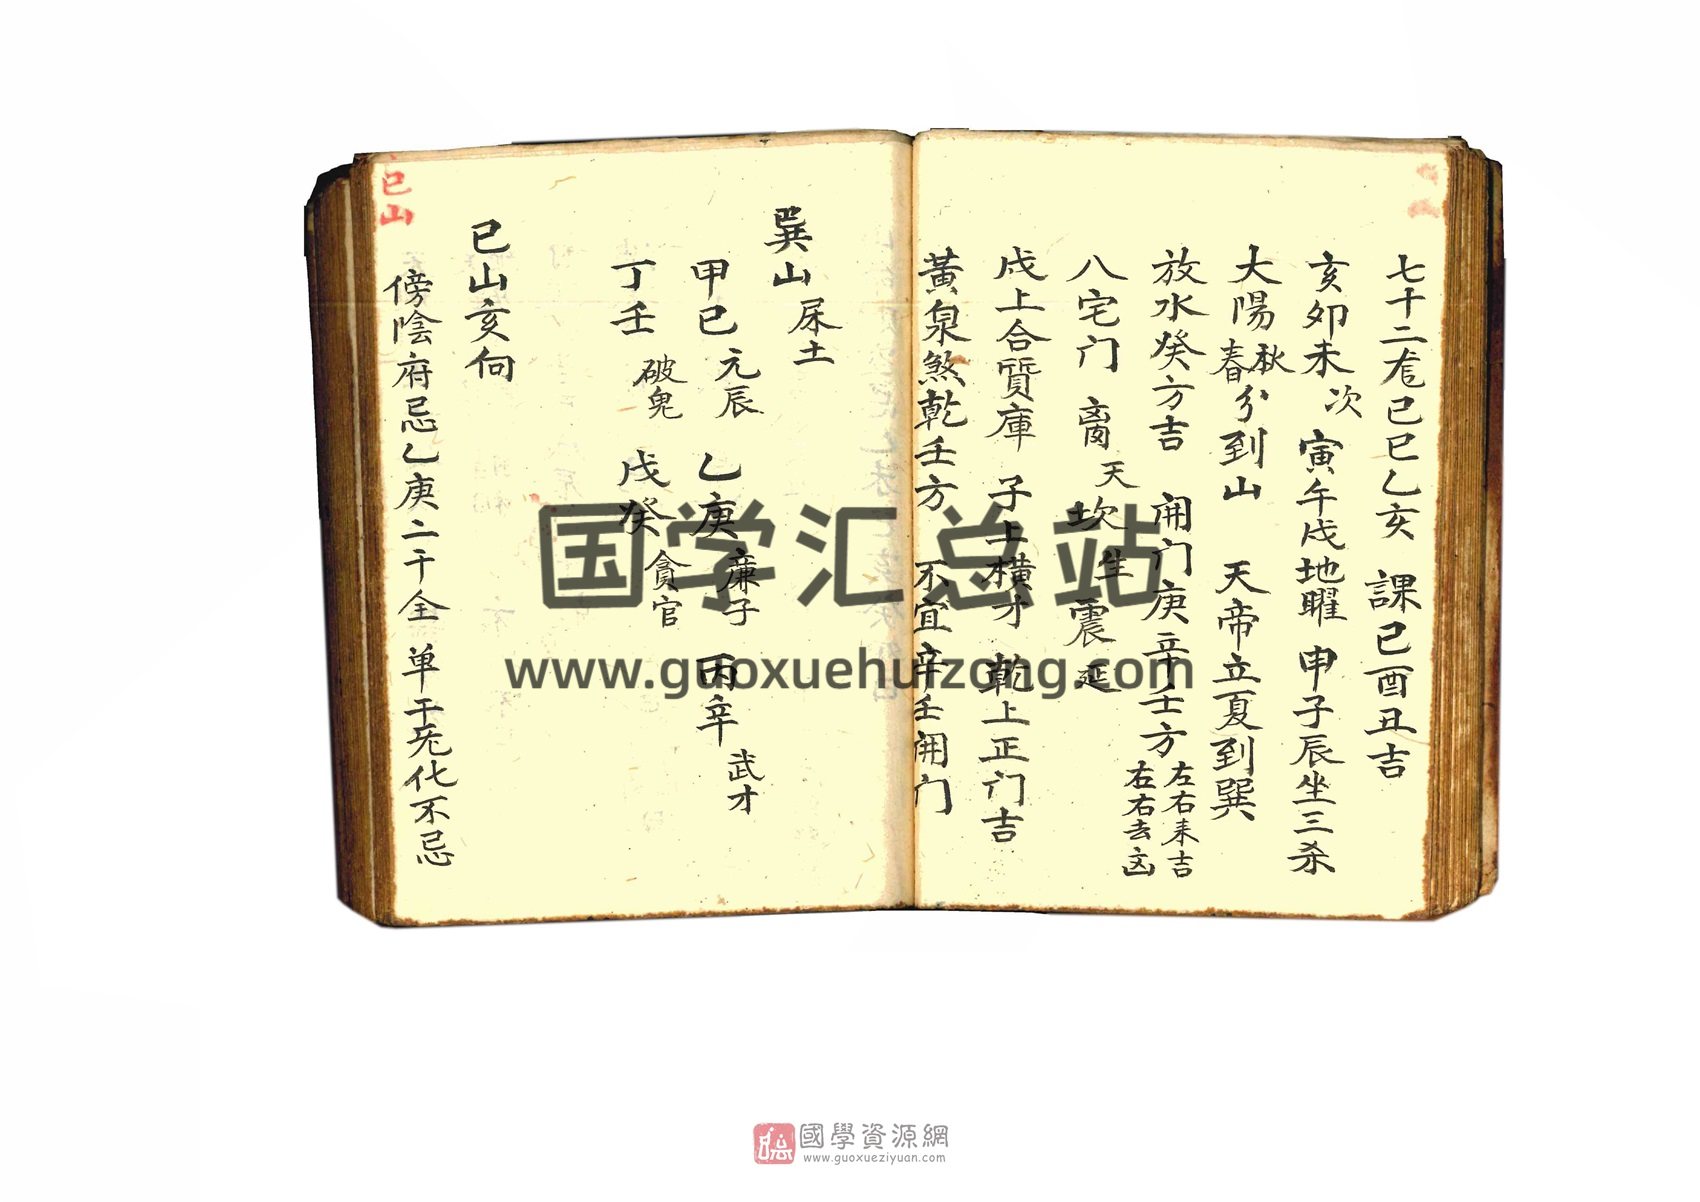 七十二宅己巳乙亥 課巳酉丑吉
亥卯未次 寅午戌地曜 申子辰坐三杀
太陽秋春分到山 天帝立夏到巽
放水癸方吉 開门庚辛壬方 左右来吉 左右去凶
八宅门 离天 坎生 震延
戌上合質庫 子上横才 乾上正门吉
黃泉煞乾壬方 不宜辛壬開门
巽山 屎土
甲己 元辰 乙庚 廉子 丙辛 武才
丁壬 破鬼 戊癸 貪官
巳山亥向
傍陰府忌乙庚二干全 单干旡化不忌
巳山
国学汇总站
www.guoxuehuizong.com
國學資源網
www.guoxueziyuan.com